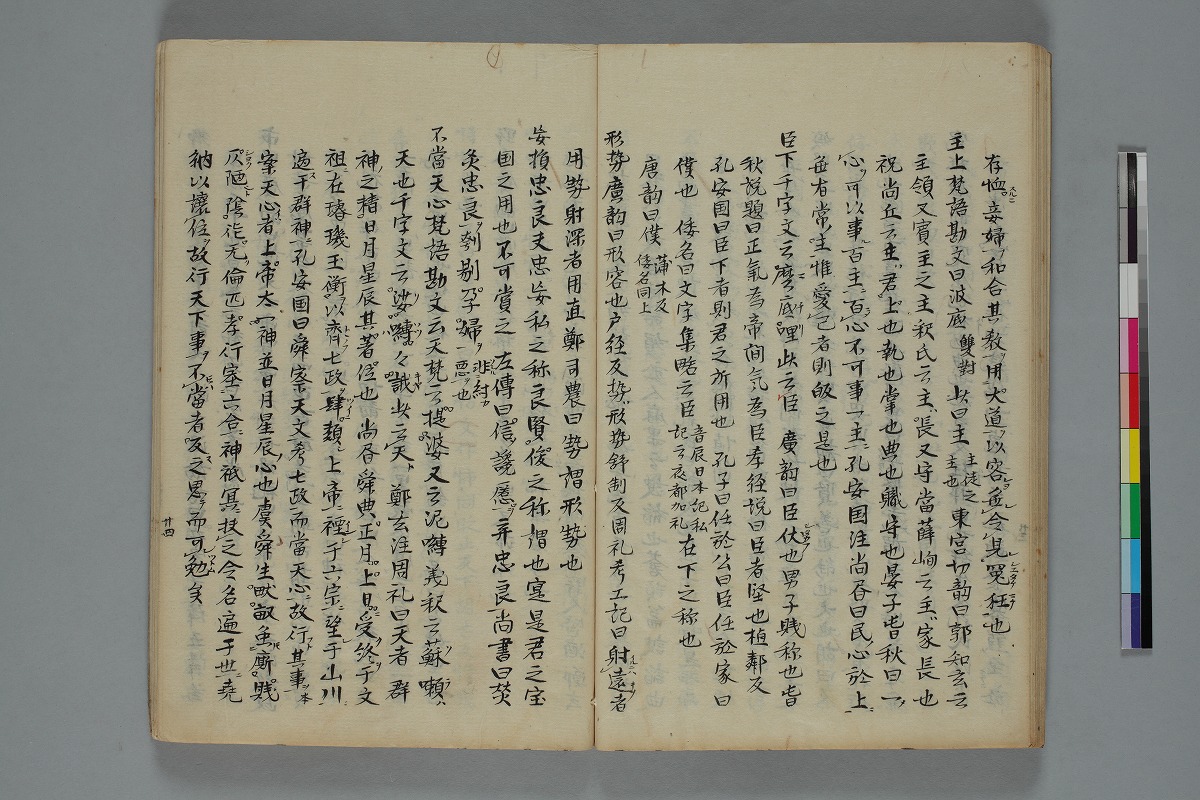 存恤妾婦和合其教用大道以容並令見冤枉也
主上梵語勘文曰波底雙對此曰主主徒之主也東宮切韻曰郭知玄云
主領又賓主之主釈氏云主長又守當薛峋云主家長也
祝尚丘云主君上也執也掌也典也職守也晏子春秋曰一
心可以事百主百心不可事一主孔安国注尚书曰民心於上
無有常主惟愛己者則皈之是也
臣下千字文云麼底哩此云臣廣韵曰臣伏也男子賎称也春
秋説題曰正氣為帝间気為臣孝経説曰臣者堅也植鄰反
孔安国曰臣下者則君之所用也孔子曰任於公曰臣任於家曰
僕也倭名曰文字集略云臣音辰日本記私記云夜都加礼在下之称也
唐韵曰僕蒲木反倭名同上
形勢廣韵曰形容也戸経反勢形勢舒制反周礼考工記曰射遠者
用勢射深者用直鄭司農曰勢謂形勢也
妾指忠良丈忠妾私之称良賢俊之称謂也寔是君之宝
国之用也不可賞之左傳曰信讒慝弃忠良尚書曰焚
炙忠良刳剔孕婦非紂悪也
不當天心梵語勘文云天梵云提婆又云泥囀義釈云蘇嚬
天也千字文云娑囀々誐此云天鄭玄注周礼曰天者群
神之精日月星辰其著位也尚书舜典正月上日受終于文
祖在璿璣玉衡以齊七政肆類上帝禋于六宗望于山川
遍于群神孔安国曰舜察天文考七政而當天心故行其事
案天心者上帝太一神並日月星辰心也虞舜生畎畝虽廝賎
仄陋陰徃无倫匹孝行塞六合神祇冥扶之令名遍于世堯
納以壤位故行天下事不當者反之思而可勉矣
廿四